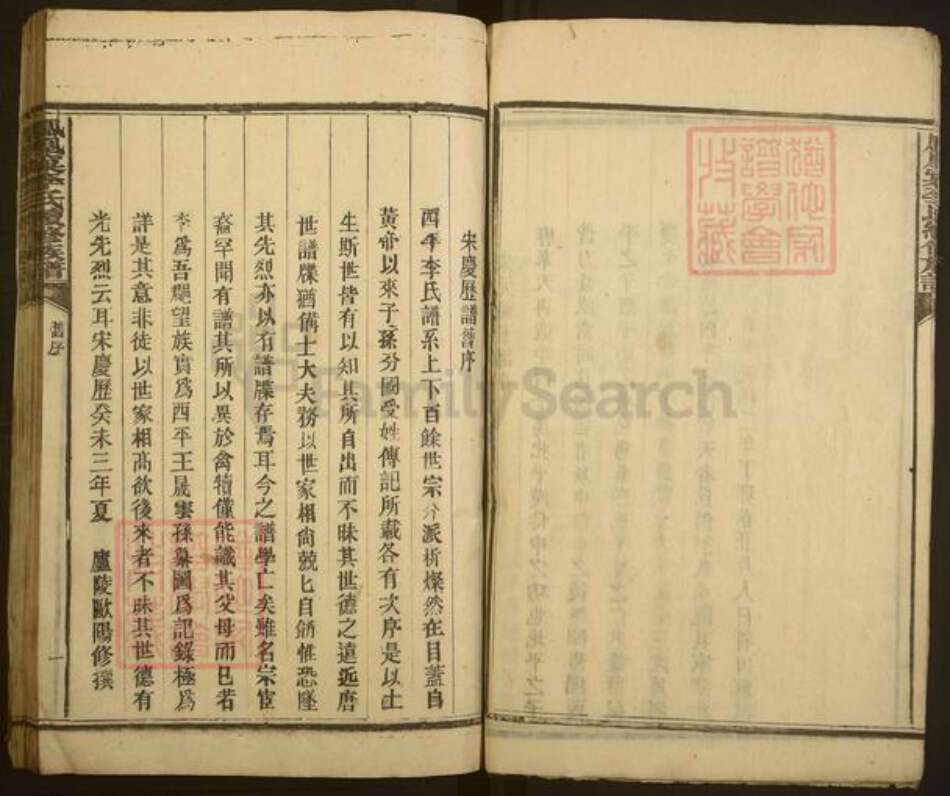 猶他家
譜學會
收藏
宋慶歷譜舊序
西平李氏譜系上下百餘世宗分派析燦然在目蓋自
黃帝以來子孫分國受姓傳記所載各有次序是以士
生斯世皆有以知其所自出而不昧其世德之遠近唐
世譜牒猶備士大夫務以世家相尙兢匕自飭惟恐墜
其先烈亦以有譜牒存焉耳今之譜學亡矣雖名宗宦
裔罕聞有譜其所以異於禽犢僅能識其父母而已若
李爲吾鄉望族實爲西平王晟裔孫纂圖爲記錄極爲
詳是其意非徒以世家相高欲後來者不昧其世德有
光先烈云耳宋慶歷癸未三年夏 廬陵歐陽修撰
李氏續修族譜
舊序
一
FamilySearch